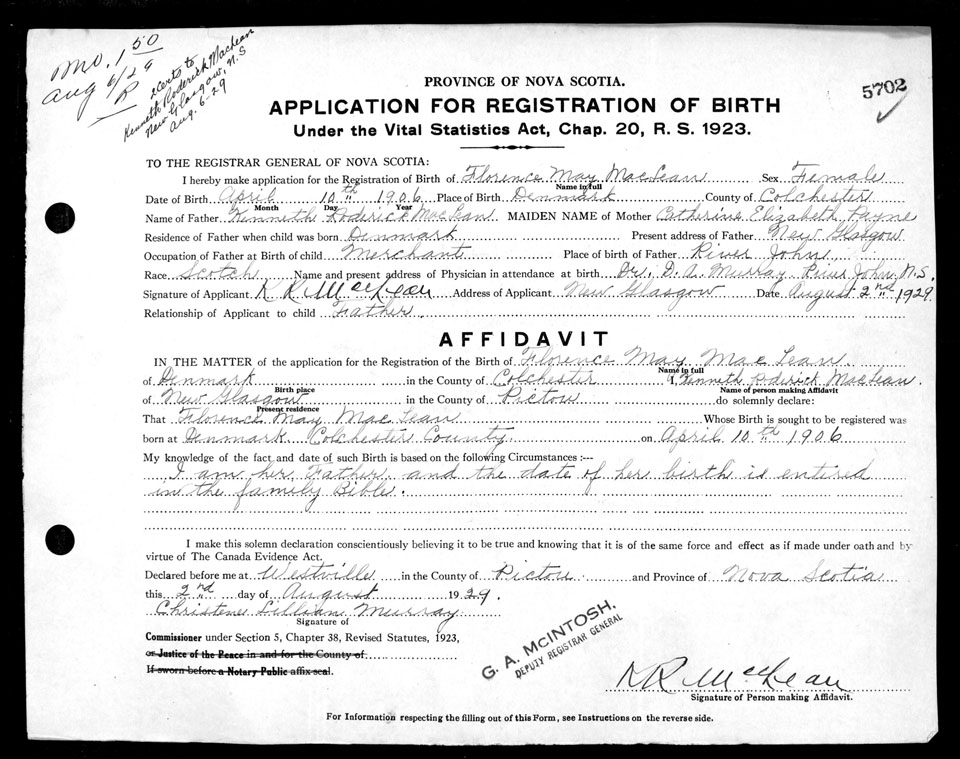 MO. 1 50
Aug 6/29
R
2 certs to
Kenneth Roderick MacLean
New Glasgow, N.S
Aug. 6-29
5702
PROVINCE OF NOVA SCOTIA.
APPLICATION FOR REGISTRATION OF BIRTH
Under the Vital Statistics Act, Chap. 20, R. S. 1923.
TO THE REGISTRAR GENERAL OF NOVA SCOTIA:
I hereby make application for the Registration of Birth of Florence May MacLean Sex Female
Name in full
Date of Birth April 10th 1906 Place of Birth Denmark County of Colchester
Month Day Year
Name of Father Kenneth Roderick MacLean MAIDEN NAME of Mother Catherine Elizabeth Payne
Residence of Father when child was born Denmark Present address of Father New Glasgow
Occupation of Father at Birth of child Merchant Place of birth of Father River John
Race Scotch Name and present address of Physician in attendance at birth Dr. D. A. Murray River John, N.S.
Signature of Applicant K R MacLean Address of Applicant New Glasgow Date August 2nd 1929
Relationship of Applicant to child Father.
AFFIDAVIT
IN THE MATTER of the application for the Registration of the Birth of Florence May MacLean
Name in full
of Denmark in the County of Colchester I, Kenneth Roderick MacLean.
Birth place Name of person making Affidavit
of New Glasgow in the County of Pictou do solemnly declare:
Present residence
That Florence May MacLean Whose Birth is sought to be registered was
born at Denmark Colchester County. on April 10th 1906
My knowledge of the fact and date of such Birth is based on the following Circumstances :—
I am her Father and the date of her birth is entired
in the family Bible.
I make this solemn declaration conscientiously believing it to be true and knowing that it is of the same force and effect as if made under oath and by
virtue of The Canada Evidence Act.
Declared before me at Westville in the County of Pictou and Province of Nova Scotia
this 2nd day of August 1929.
Christene Lillian Murray
Signature of
Commissioner under Section 5, Chapter 38, Revised Statutes, 1923,
or Justice of the Peace in and for the County of
If sworn before a Notary Public affix seal.
G. A. MCINTOSH.
DEPUTY REGISTRAR GENERAL
K R MacLean
Signature of Person making Affidavit.
For Information respecting the filling out of this Form, see Instructions on the reverse side.